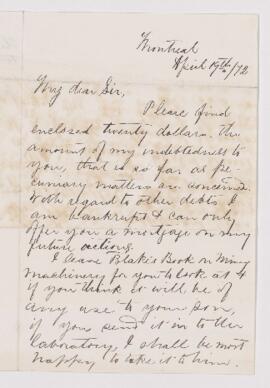 Montreal
April 19th/72
My dear Sir,
Please find
enclosed twenty dollars. the
amount of my indebtedness to
you, that is so far as pe-
cuniary matters are concerned
With regard to other debts I
am bankrupt & can only
offer you a mortgage on my
future actions.
I leave Blake's Book on Mining
machinery for you to look at &
if you think it will be of
any use to your son,
if you send it in to the
laboratory, I shall be most
happy to take it to him.